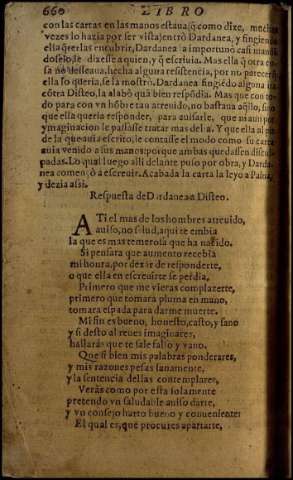 660 LIBRO
con las cartas en las manos estaua, q̃ como dixe, muchas
vezes lo hazia por ser vista, entrò Dardanea, y fingiendo
ella q̃rerlas encubrir, Dardanea la importunò casi mandã
doselo, le dixesse a quien, y q̃ escriuia. Mas ella q̃ otra co-
sa no desseaua, hecha alguna resistencia, por no parecer q̃
ella lo queria, se la mostrò. Dardanea fingiẽdo alguna ira
cõtra Disteo, la alabò quã bien respõdia. Mas que con to-
do para con vn hõbre tan atreuido, no bastaua aq̃llo, sino
que ella queria responder, para auisarle, que ni aun por
ymaginacion le passasse tratar mas della. Y que ella al pie
de la que auia escrito, le contasse el modo como su carta
auia venido a sus manos, porque ambas quedassen discul-
padas. Lo qual luego alli delante puso por obra, y Darda-
nea començò a escreuir. Acabada la carta la leyo a Palna,
y dezia assi.
Respuesta de Dardanea a Disteo.
A Ti el mas de los hombres atreuido,
auiso, no salud, aqui te embia
la que es mas temerosa que ha nacido.
Si pensara que aumento recebia
mi honra, por dexar de responderte,
o que ella en escreuirte se perdia,
Primero que me vieras complazerte,
primero que tomara pluma en mano,
tomara espada para darme muerte.
Mi fin es bueno, honesto, casto, y sano
y si desto al reues imaginares,
hallaràs que te sale falso y vano.
Que si bien mis palabras ponderares,
y mis razones pesas sanamente,
y la sentencia dellas contemplares,
Veràs como por esta solamente
pretendo vn saludable auiso darte,
y vn consejo harto bueno y conueniente:
El qual es, que procures apartarte,